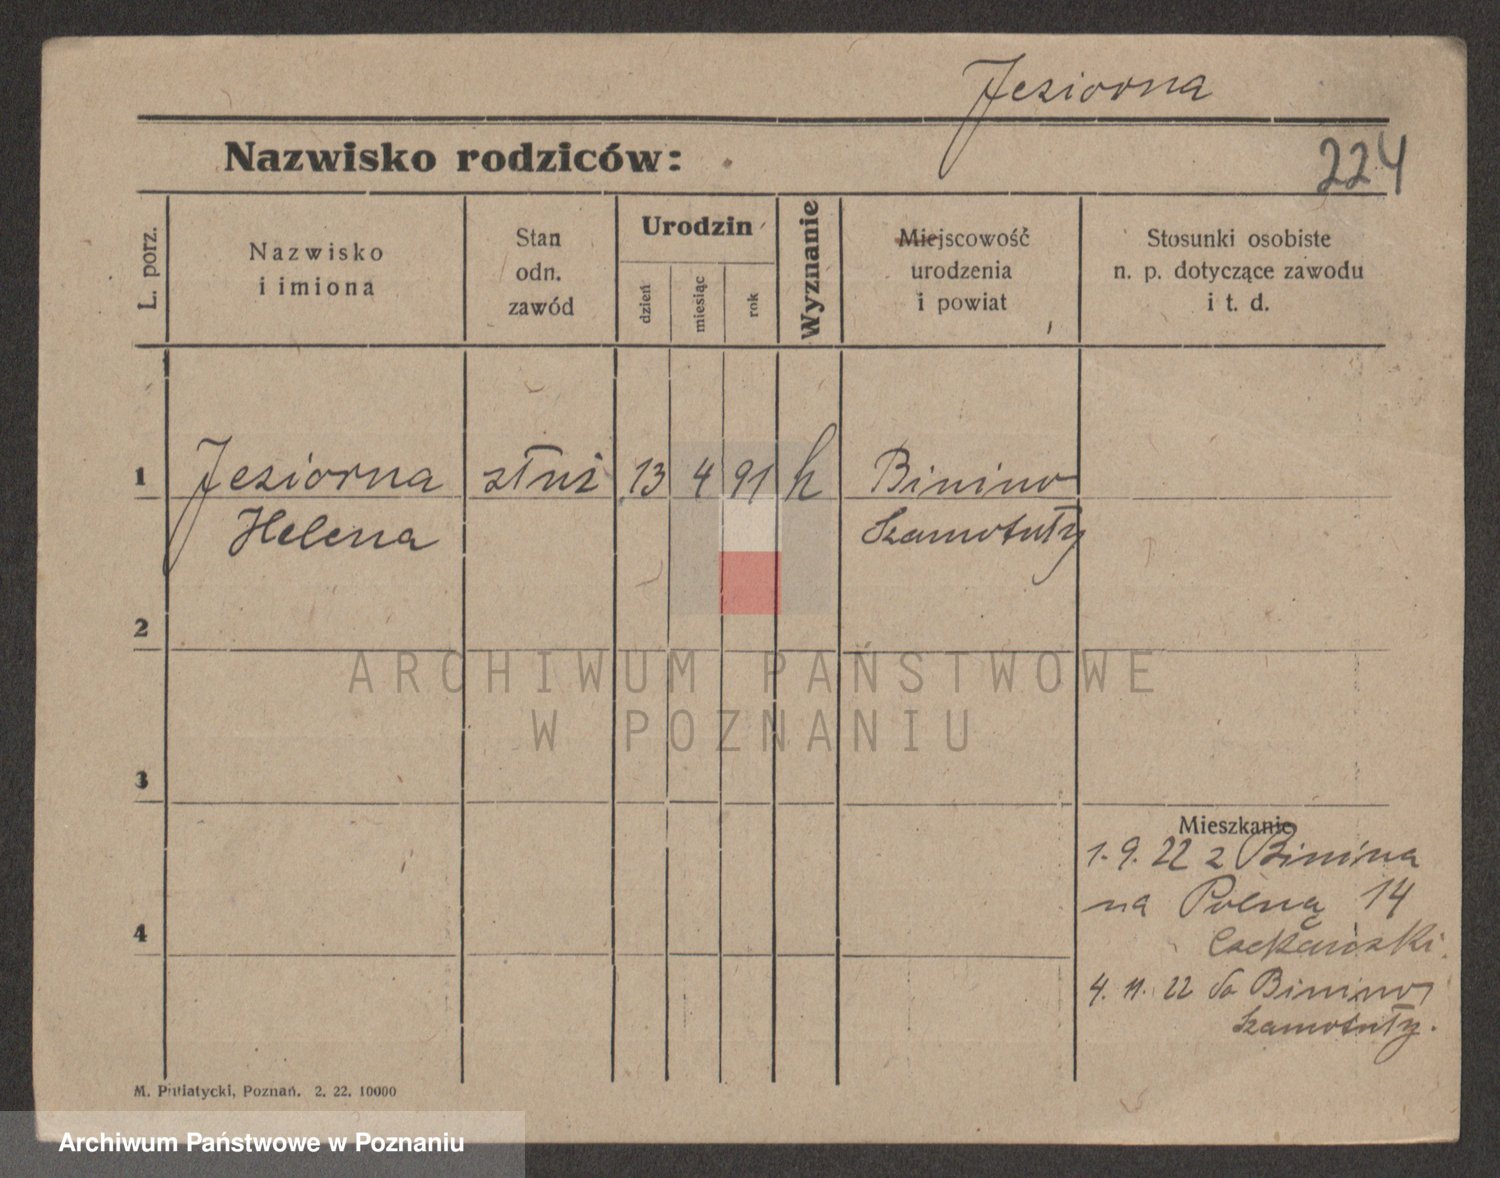 Jeziorna
Nazwisko rodziców:
224
L. porz.
Nazwisko
i imiona
Stan
odn.
zawód
Urodzin
dzień
miesiąc
rok
Wyznanie
Miejscowość
urodzenia
i powiat
Stosunki osobiste
n. p. dotyczące zawodu
i t. d.
1
Jeziorna
Helena
służ
13
4
91
k
Binino
Szamotuły
2
ARCHIWUM PAŃSTWOWE
W POZNANIU
3
Mieszkanie
1. 9. 22 z Binina
na Polną 14
4
4. 11. 22 do Binino
Szamotuły.
M. Putiatycki, Poznań. 2. 22. 10000
Archiwum Państwowe w Poznaniu